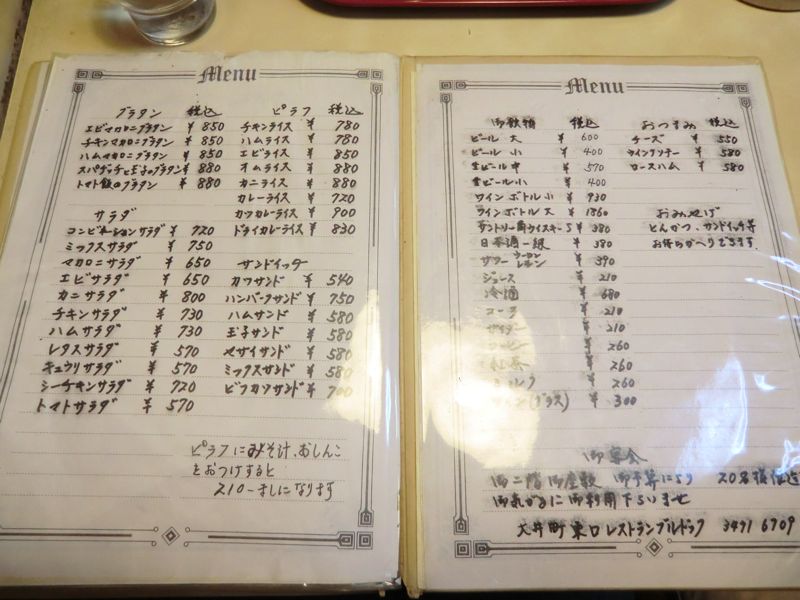 Menu
グラタン 税込
エビマカロニグラタン ¥ 850
チキンマカロニグラタン ¥ 850
ハムマカロニグラタン ¥ 850
スパゲッティ玉子のグラタン ¥ 880
トマト飯のグラタン ¥ 880
サラダ
コンビネーションサラダ ¥ 720
ミックスサラダ ¥ 750
マカロニサラダ ¥ 650
エビサラダ ¥ 650
カニサラダ ¥ 800
チキンサラダ ¥ 730
ハムサラダ ¥ 730
レタスサラダ ¥ 570
キュウリサラダ ¥ 570
シーチキンサラダ ¥ 720
トマトサラダ ¥ 570
ピラフ 税込
チキンライス ¥ 780
ハムライス ¥ 780
エビライス ¥ 850
オムライス ¥ 880
カニライス ¥ 880
カレーライス ¥ 720
カツカレーライス ¥ 900
ドライカレーライス ¥ 830
サンドイッチ
カツサンド ¥ 540
ハンバークサンド ¥ 750
ハムサンド ¥ 580
玉子サンド ¥ 580
ヤサイサンド ¥ 580
ミックスサンド ¥ 580
ビフカツサンド ¥ 700
ピラフにみそ汁、おしんこ
をおつけすると
210-ましになります
Menu
御飲物 税込
ビール 大 ¥ 600
ビール 小 ¥ 400
生ビール 中 ¥ 570
生ビール 小 ¥ 400
ワインボトル 小 ¥ 930
ワインボトル 大 ¥ 1860
サントリー角ウイスキー S ¥ 380
日本酒一級 ¥ 380
サワー ウーロン レモン ¥ 390
ジュース ¥ 210
冷酒 ¥ 680
コーラ ¥ 210
サイダー ¥ 210
コーヒー ¥ 260
紅茶 ¥ 260
ミルク ¥ 260
ワイン(グラス) ¥ 300
おつまみ 税込
チーズ ¥ 550
ウインナソテー ¥ 580
ロースハム ¥ 580
おみやげ
とんかつ、サンドイッチ等
お持ちかへりできます。
御宴会
御二階御座敷 御予算により 20名様位迄
御気がるに御利用下さいませ
大井町東口レストランブルドック 3471 6709